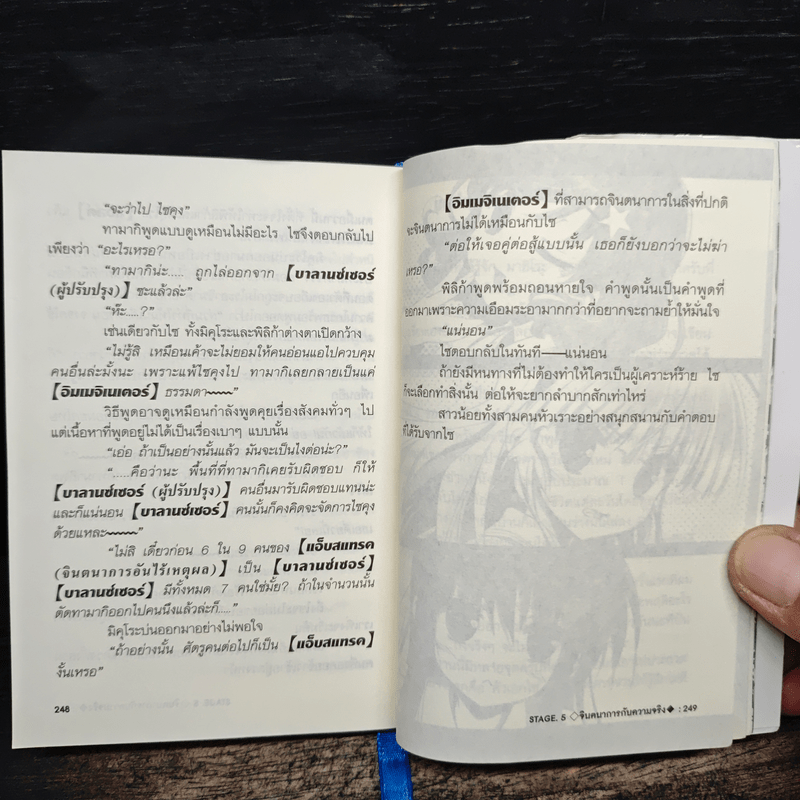 “จะว่าไป ไซคุง”
ทามากิพูดแบบดูเหมือนไม่มีอะไร ไซจึงตอบกลับไป
เพียงว่า “อะไรเหรอ?”
“ทามากิน่ะ..... ถูกไล่ออกจาก 【บาลานซ์เซอร์
(ผู้ปรับปรุง)】 ซะแล้วล่ะ”
“ห๊ะ....?”
เช่นเดียวกับไซ ทั้งมิคุโระและพิลิก้าต่างตาเปิดกว้าง
“ไม่รู้สิ เหมือนเค้าจะไม่ยอมให้คนอ่อนแอไปควบคุม
คนอื่นล่ะมั้งนะ เพราะแพ้ไซคุงไป ทามากิเลยกลายเป็นแค่
【อิมเมจิเนเตอร์】 ธรรมดา~~~~”
วิธีพูดอาจดูเหมือนกำลังพูดคุยเรื่องสังคมทั่วๆ ไป
แต่เนื้อหาที่พูดอยู่ไม่ได้เป็นเรื่องเบาๆ แบบนั้น
“เอ่อ ถ้าเป็นอย่างนั้นแล้ว มันจะเป็นไงต่อน่ะ?”
“.....คือว่านะ พื้นที่ที่ทามากิเคยรับผิดชอบ ก็ให้
【บาลานซ์เซอร์ (ผู้ปรับปรุง)】 คนอื่นมารับผิดชอบแทนน่ะ
และก็แน่นอน 【บาลานซ์เซอร์】 คนนั้นก็คงคิดจะจัดการไซคุง
ด้วยแหละ~~~~”
“ไม่สิ เดี๋ยวก่อน 6 ใน 9 คนของ 【แอ็บสแทรค
(จินตนาการอันไร้เหตุผล)】 เป็น 【บาลานซ์เซอร์】
【บาลานซ์เซอร์】 มีทั้งหมด 7 คนใช่มั้ย? ถ้าในจำนวนนั้น
ตัดทามากิออกไปคนนึงแล้วล่ะก็....”
มิคุโระบ่นออกมาอย่างไม่พอใจ
“ถ้าอย่างนั้น ศัตรูคนต่อไปก็เป็น 【แอ็บสแทรค】
งั้นเหรอ”
248
【อิมเมจิเนเตอร์】 ที่สามารถจินตนาการในสิ่งที่ปกติ
จะจินตนาการไม่ได้เหมือนกับไซ
“ต่อให้เจอคู่ต่อสู้แบบนั้น เธอก็ยังบอกว่าจะไม่ฆ่า
เหรอ?”
พิลิก้าพูดพร้อมถอนหายใจ คำพูดนั้นเป็นคำพูดที่
ออกมาเพราะความเอือมระอามากกว่าที่อยากจะถามย้ำให้มั่นใจ
“แน่นอน”
ไซตอบกลับในทันที——แน่นอน
ถ้ายังมีหนทางที่ไม่ต้องทำให้ใครเป็นผู้เคราะห์ร้าย ไซ
ก็จะเลือกทำสิ่งนั้น ต่อให้จะยากลำบากสักเท่าไหร่
สาวน้อยทั้งสามคนหัวเราะอย่างสนุกสนานกับคำตอบ
ที่ได้รับจากไซ
STAGE. 5 ◇จินตนาการกับความจริง◆ : 249